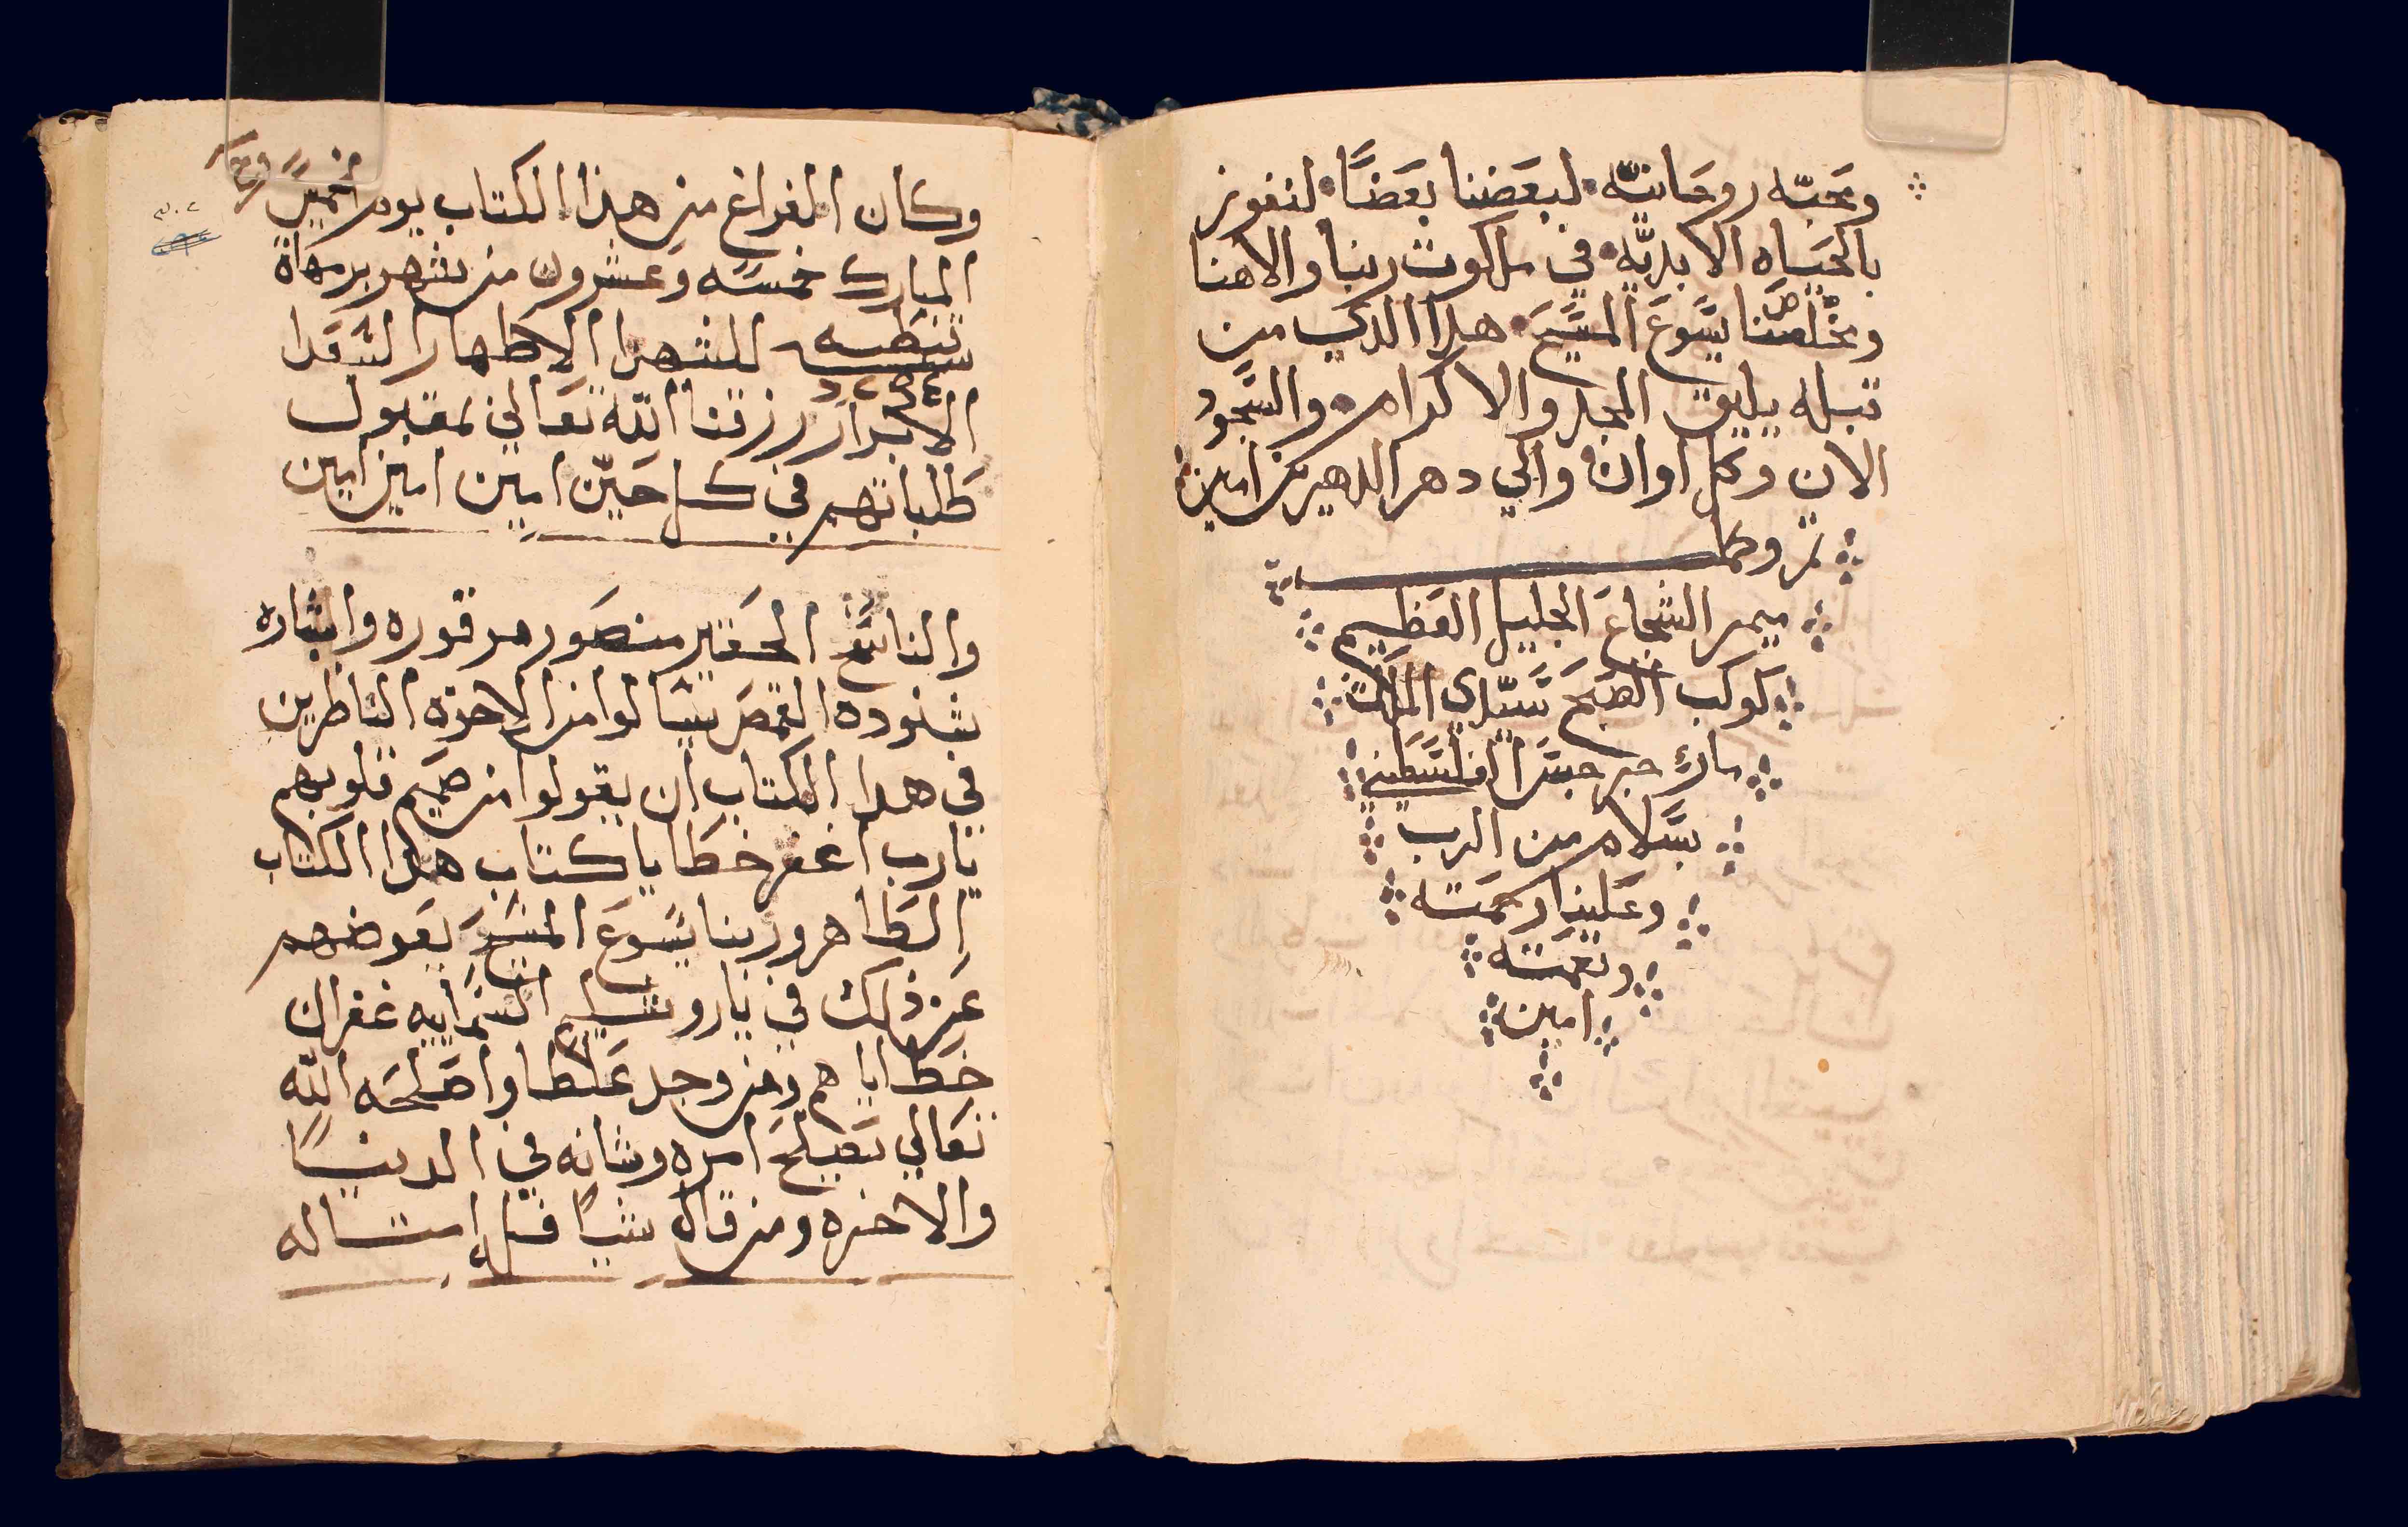 ومحبّه روحانيّه لبعَضنا بعَضًا لنفوز
بالحَياه الابديّه في ملكوت ربنا والاهنا
ومخلصَنا يسَوعَ المسَيحَ هدا الدي من
قبله يليق المجد والاكرام والسَجود
الان وكل اوان والي دهر الداهرين امين
تم وكمل
ميمر الشجاعَ الجليل العَظيم
كوكب الصَبحَ سَيّدي الملك
ماري جرجسَ الفلسَطيني
بسَلام من الرب
وعَلينا رحمَته
ونعَمته
امين
وكان الفراغ من هذا الكتاب يوم الخميس
المبارك خمسَه وعَشرون من شهر برمهات
سنة للشهدا الاطهار السَعَدا
الابرار رزقنا اللّه تعَالي بمقبول
طَلباتهم في كل حَيّن امين امين امين
والناسَخ الحَقير منصَور مرقوره وابشاره
شنوده القمصَ يسَالوا من الاخوه الناظرين
في هدا الكتاب ان يقولوا من صَميم قلوبهم
يارب اغفر خطَايا كتاب هدا الكتاب
الطَاهر وربنا يسَوعَ المسَيحَ يعَوضهم
عَن ذلك في ياروشليم السَمَاييه غفران
خطَاياهم ومن وجد غلطَا واصَلحَه اللّه
تعَالي يصَلحَ امره وشانه في الدنيا
والاخره ومن قال شياً فله امتاله